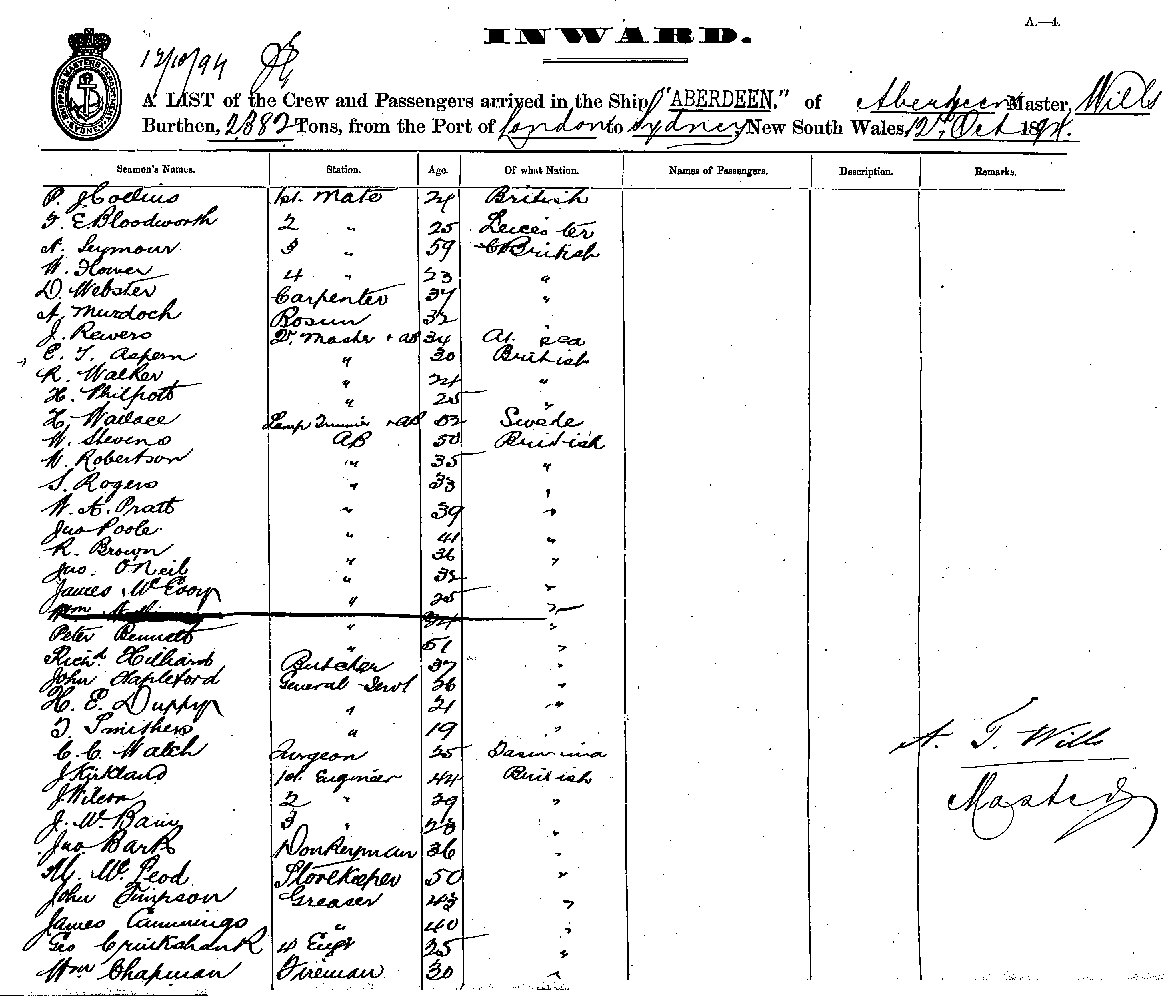 A.—4.
INWARD.
12/10/94
A LIST of the Crew and Passengers arrived in the Ship "ABERDEEN." of Aberdeen Master, Wills
Burthen, 2382 Tons, from the Port of London to Sydney New South Wales, 12th Oct 1894.
Seamen's Names. Station. Age. Of what Nation. Names of Passengers. Description. Remarks.
P. J. Collins 1st. Mate British
T. E. Bloodworth 2 " 25 Leicester
A. Seymour 3 " 59 British
W. Flower 4 " 23 "
D. Webster Carpenter 37 "
A. Murdoch Bosun 32
J. Rewers Qr. Master + AB 34 At sea
E. T. Aspern " 30 British
R. Walker " 24 "
H. Philpott " 25 "
H. Wallace Lamp Trimmer + AB 52 Swede
W. Stevens AB 50 British
W. Robertson " 35 "
S. Rogers " 33 "
W. A. Pratt " 39 "
Jno Poole " 41 "
R. Brown " 36 "
Jno. O'Neil " 32 "
James McEvoy " 25 "
Wm "
Peter Bennett " 51 "
Richd Hilliard Butcher 37 "
John Stapleford General Servt 26 "
H. E. Duppy " 21 "
T. Smithers " 19 "
C. C. Walch Surgeon 25 Tasmania
A. T. Wills
J. Kirkland 1st. Engineer 44 British
J. Wilson 2 " 29 "
Master
J. McBain 3 " 23 "
Jno Bark Donkeyman 36 "
M. McLeod Storekeeper 50 "
John Simpson Greaser 43 "
James Cummings " 40 "
Geo Cruikshank 4 Engr 25 "
Wm Chapman Fireman 30 "